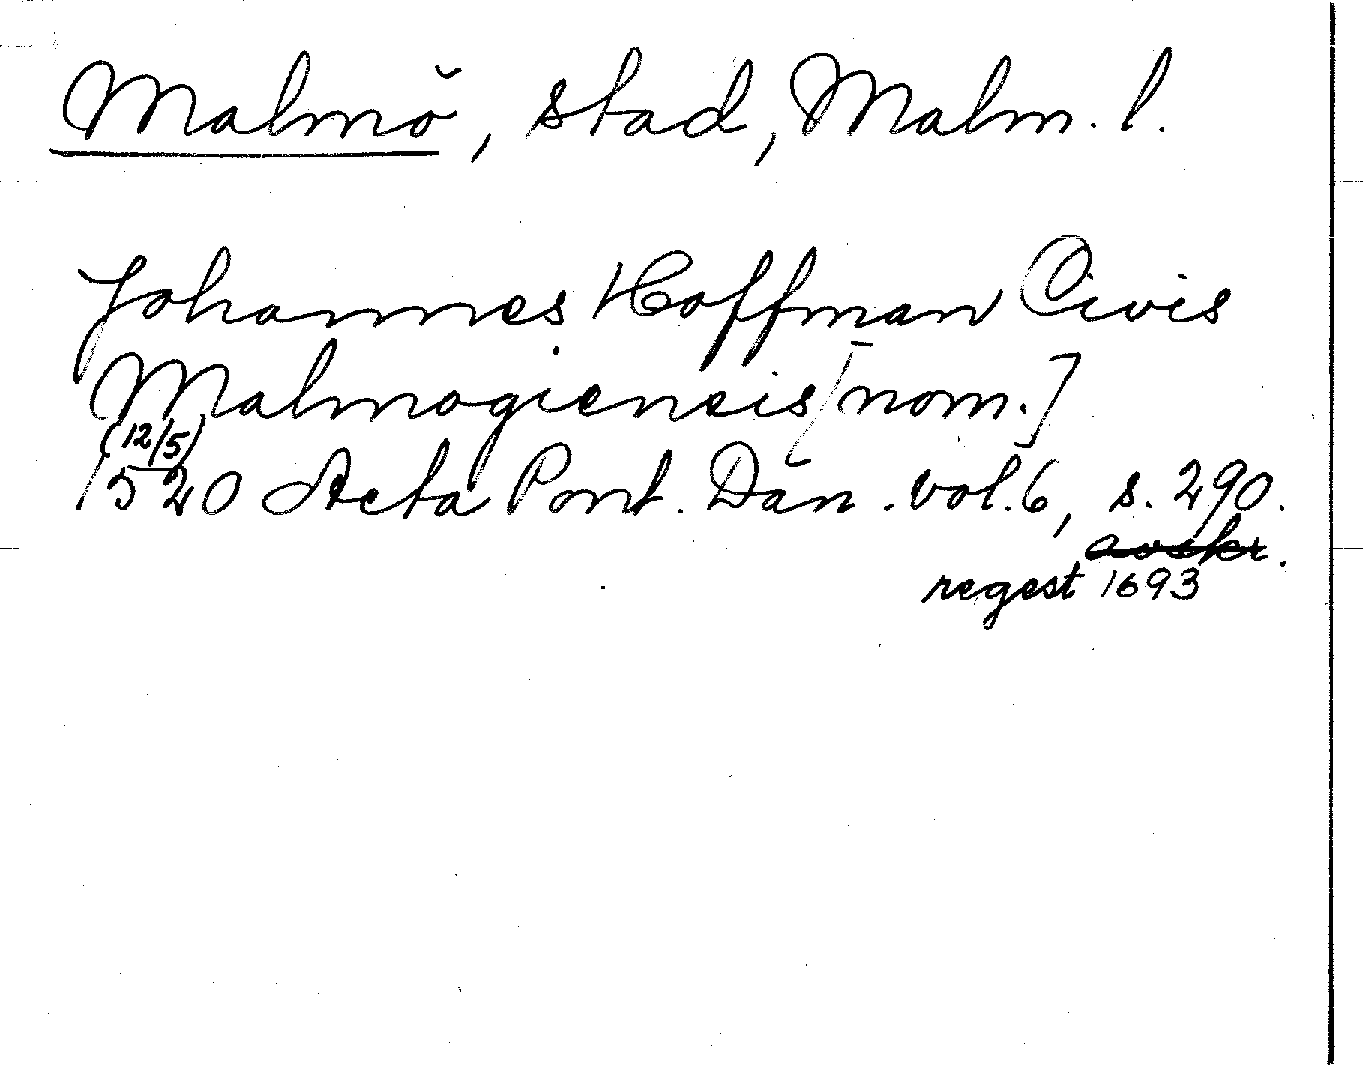 Malmö, stad, Malm. l.
Johannes Hoffman Civis
Malmogiensis [nom.]
(12/5)
1520 Acta Pont. Dan. vol. 6, s. 290.
avskr.
regest 1693